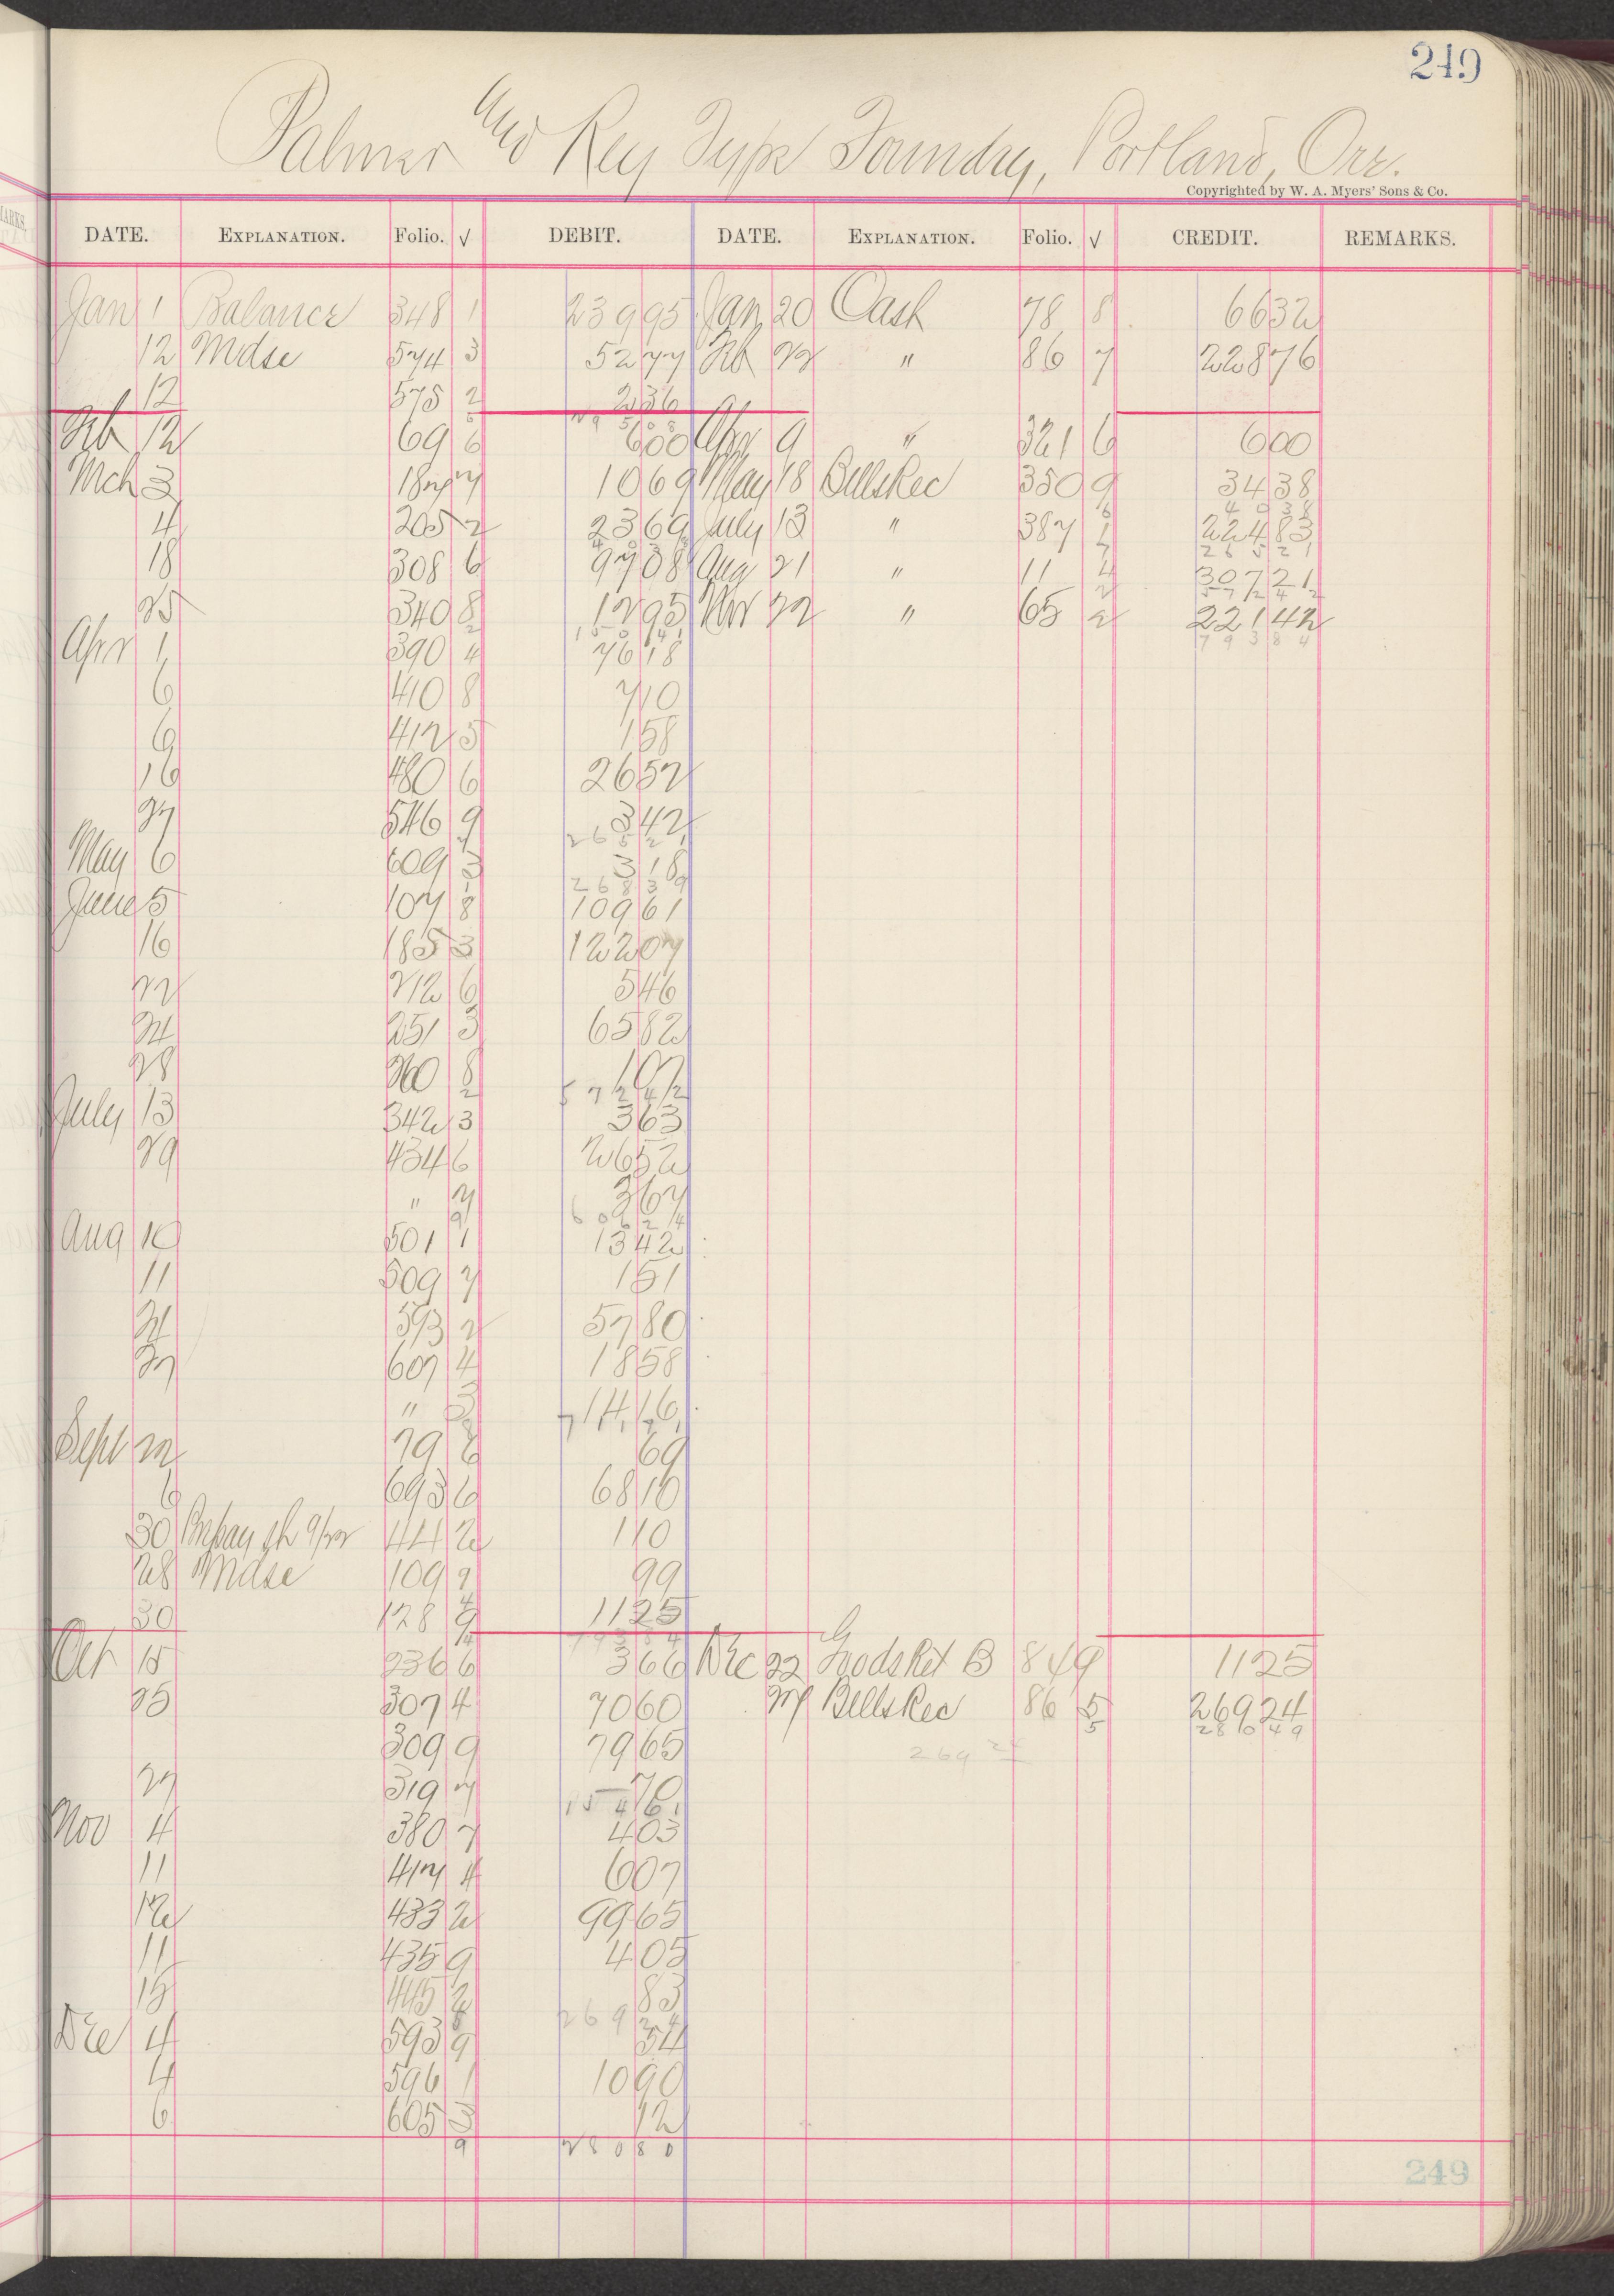 249
Palmer and Rey Type Foundry, Portland, Ore.
Copyrighted by W. A. Myers' Sons & Co.
DATE. EXPLANATION. Folio. √ DEBIT. DATE. EXPLANATION. Folio. √ CREDIT. REMARKS.
Jan 1 Balance 348 1 239 95 Jan 20 Cash 78 8 66 32
12 Mdse 574 3 52 77 Feb 22 " 86 7 228 76
12 575 2 2 36
Feb 12 69 6 6 00 Apr 9 " 321 6 6 00
Mch 3 187 7 10 69 May 18 Bills Rec 350 9 34 38
40 38
4 205 2 23 69 July 13 " 387 1 224 83
265 21
18 308 6 97 08 Aug 21 " 11 4 307 21
572 42
25 340 8 12 95 Nov 22 " 65 2 221 42
793 84
Apr 1 390 4 76 18
6 410 8 7 10
6 412 5 1 58
16 480 6 26 52
27 546 9 3 42
265 21
May 6 609 3 3 18
268 39
June 5 107 8 109 61
16 185 3 122 07
22 212 6 5 46
24 251 3 65 82
28 260 8
572 42
July 13 342 3 3 63
29 434 6 26 52
" 7 3 67
606 24
Aug 10 501 1 13 42
11 509 7 1 51
21 573 2 57 80
27 607 4 18 58
" 3 14 16
Sept 22 79 8 69
6 693 6 68 10
30 44 2 1 10
28 Mdse 109 9 99
30 128 9 11 25
793 84
Oct 15 236 6 3 66 Dec 22 Goods Ret B 84 9 11 25
25 307 4 70 60 24 Bills Rec 86 5 269 24
280 49
309 9 79 65 269 24
27 319 7 76
Nov 4 380 7 4 03
11 417 4 6 07
12 433 2 99 65
11 435 9 4 05
15 445 2 83
269 24
Dec 4 593 9 34
4 596 1 10 90
6 605 3 12
9 280 80
249